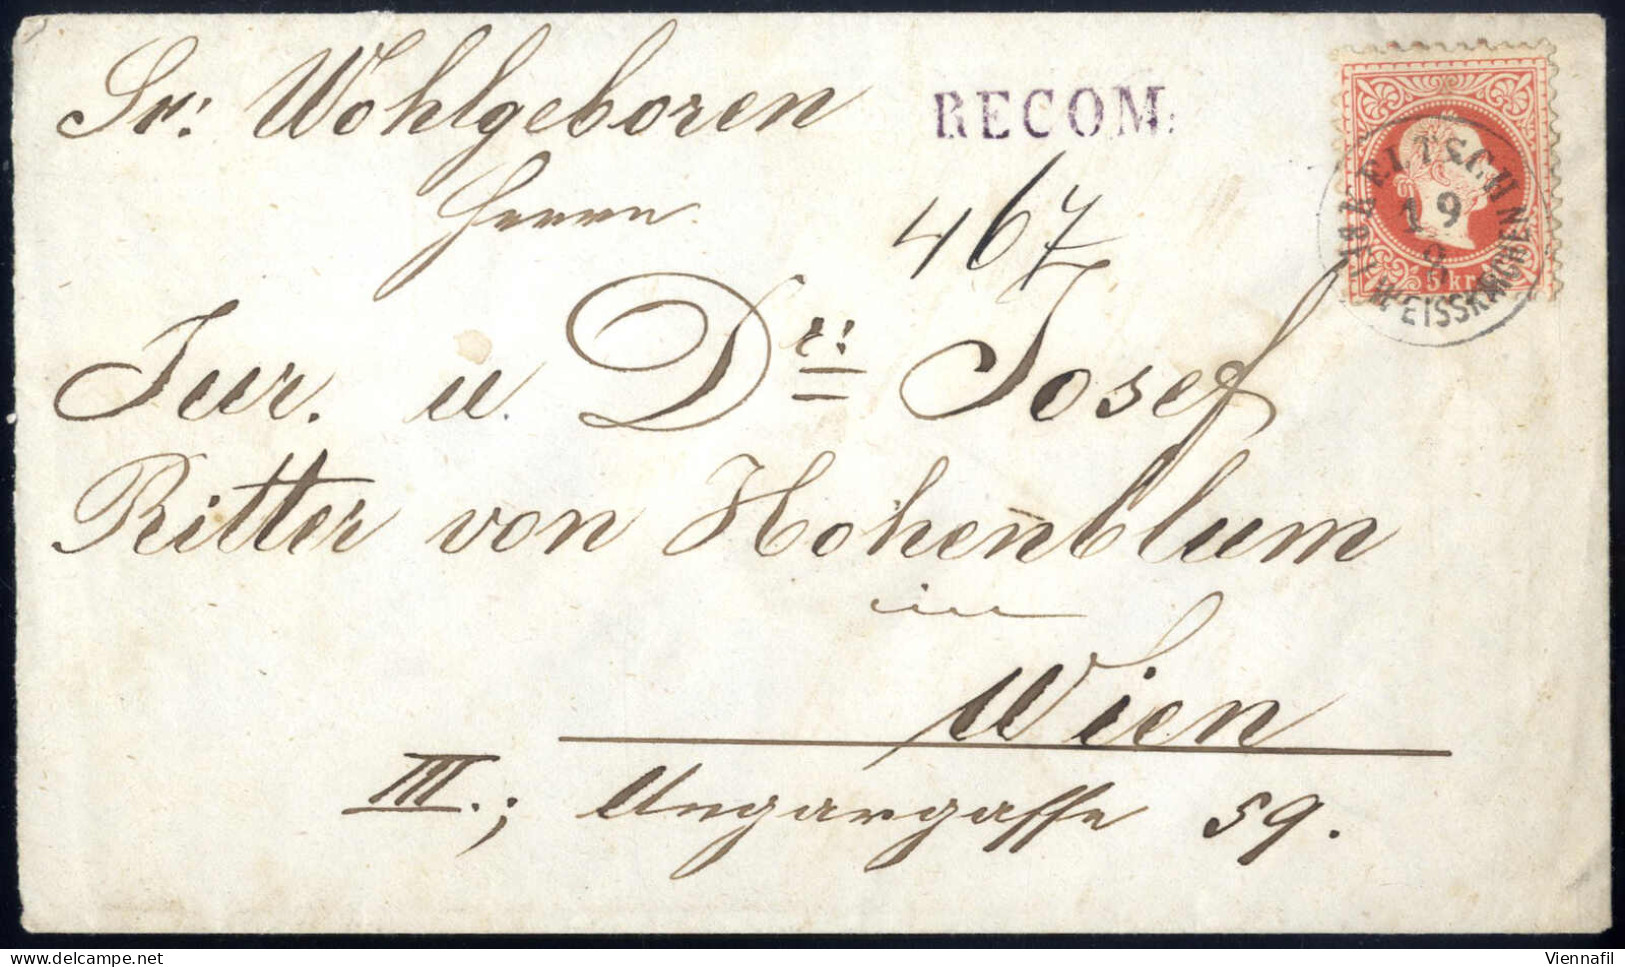 Sr: Wohlgeboren
RECOM:
Herrn
467
Jur. u. Dr: Josef
Ritter von Hohenblum
in
Wien
III.; Ungargasse 59.
19
8
5 kr
WEISSKIRCHEN
Viennafil